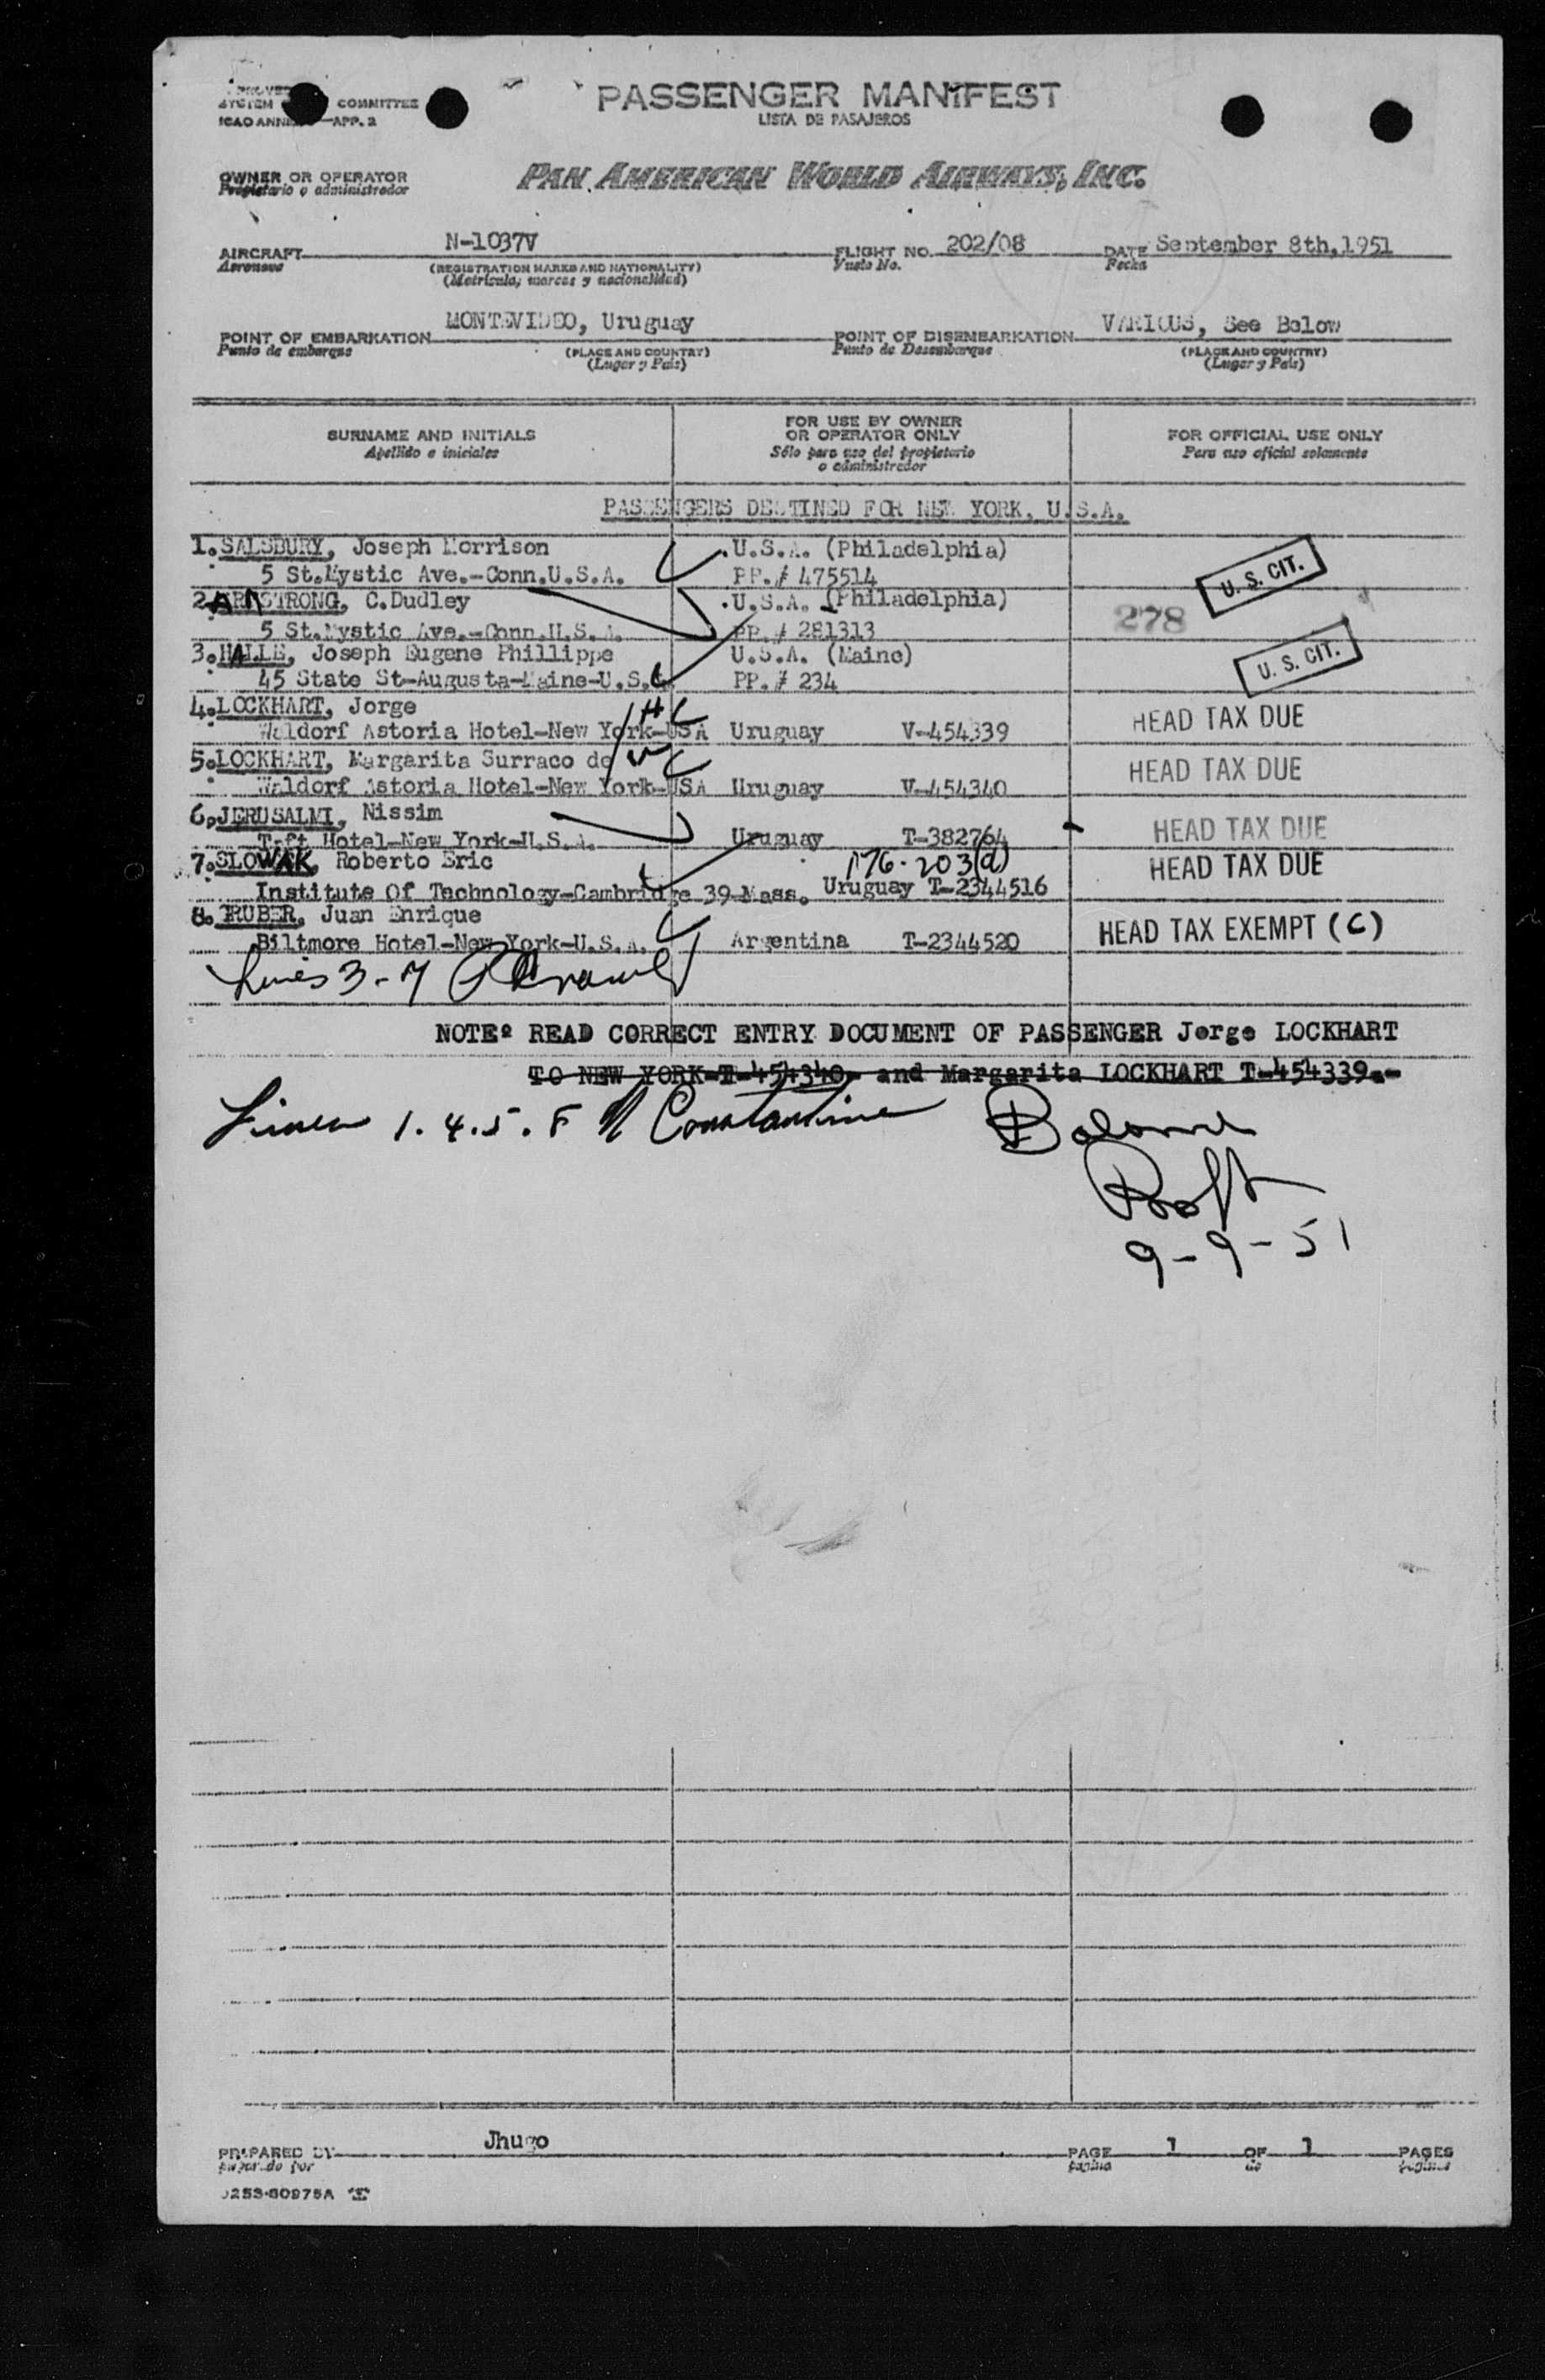 PASSENGER MANIFEST
SYSTEM COMMITTEE
ICAO ANNE —APP. 2
LISTA DE PASAJEROS
OWNER OR OPERATOR
Propietario o administrador
PAN AMERICAN WORLD AIRWAYS, INC.
AIRCRAFT N-1037V FLIGHT NO. 202/08 DATE September 8th,1951
Aeronave (REGISTRATION MARKS AND NATIONALITY) Vuelo No. Fecha
(Matrícula, marcas y nacionalidad)
POINT OF EMBARKATION MONTEVIDEO, Uruguay POINT OF DISEMBARKATION VARIOUS, See Below
Punto de embarque (PLACE AND COUNTRY) Punto de Desembarque (PLACE AND COUNTRY)
(Lugar y País) (Lugar y País)
SURNAME AND INITIALS FOR USE BY OWNER OR OPERATOR ONLY FOR OFFICIAL USE ONLY
Apellido e iniciales Sólo para uso del propietario o administrador Para uso oficial solamente
PASSENGERS DESTINED FOR NEW YORK, U.S.A.
1. SALSBURY, Joseph Morrison U.S.A. (Philadelphia)
5 St.Mystic Ave.-Conn.U.S.A. PP.# 475514 U. S. CIT.
2. ARMSTRONG, C.Dudley U.S.A. (Philadelphia) 278
5 St.Mystic Ave.-Conn.U.S.A. PP.# 281313
3. HALLE, Joseph Eugene Phillippe U.S.A. (Maine) U. S. CIT.
45 State St-Augusta-Maine-U.S. PP.# 234
4. LOCKHART, Jorge HEAD TAX DUE
Waldorf Astoria Hotel-New York-USA Uruguay V-454339
5. LOCKHART, Margarita Surraco de HEAD TAX DUE
Waldorf Astoria Hotel-New York-USA Uruguay V-454340
6. JERUSALMI, Nissim
Taft Hotel-New York-U.S.A. Uruguay T-382764 HEAD TAX DUE
7. SLOWAK, Roberto Eric 176-203(a) HEAD TAX DUE
Institute Of Technology-Cambridge 39-Mass. Uruguay T-2344516
8. TRUBER, Juan Enrique
Biltmore Hotel-New York-U.S.A. Argentina T-2344520 HEAD TAX EXEMPT (C)
Lines 3-7
NOTE: READ CORRECT ENTRY DOCUMENT OF PASSENGER Jorge LOCKHART
TO NEW YORK-T-454340- and Margarita LOCKHART T-454339.-
Lines 1.4.5.8 Constantine
9-9-51
PREPARED BY Jhugo PAGE 1 OF 1 PAGES